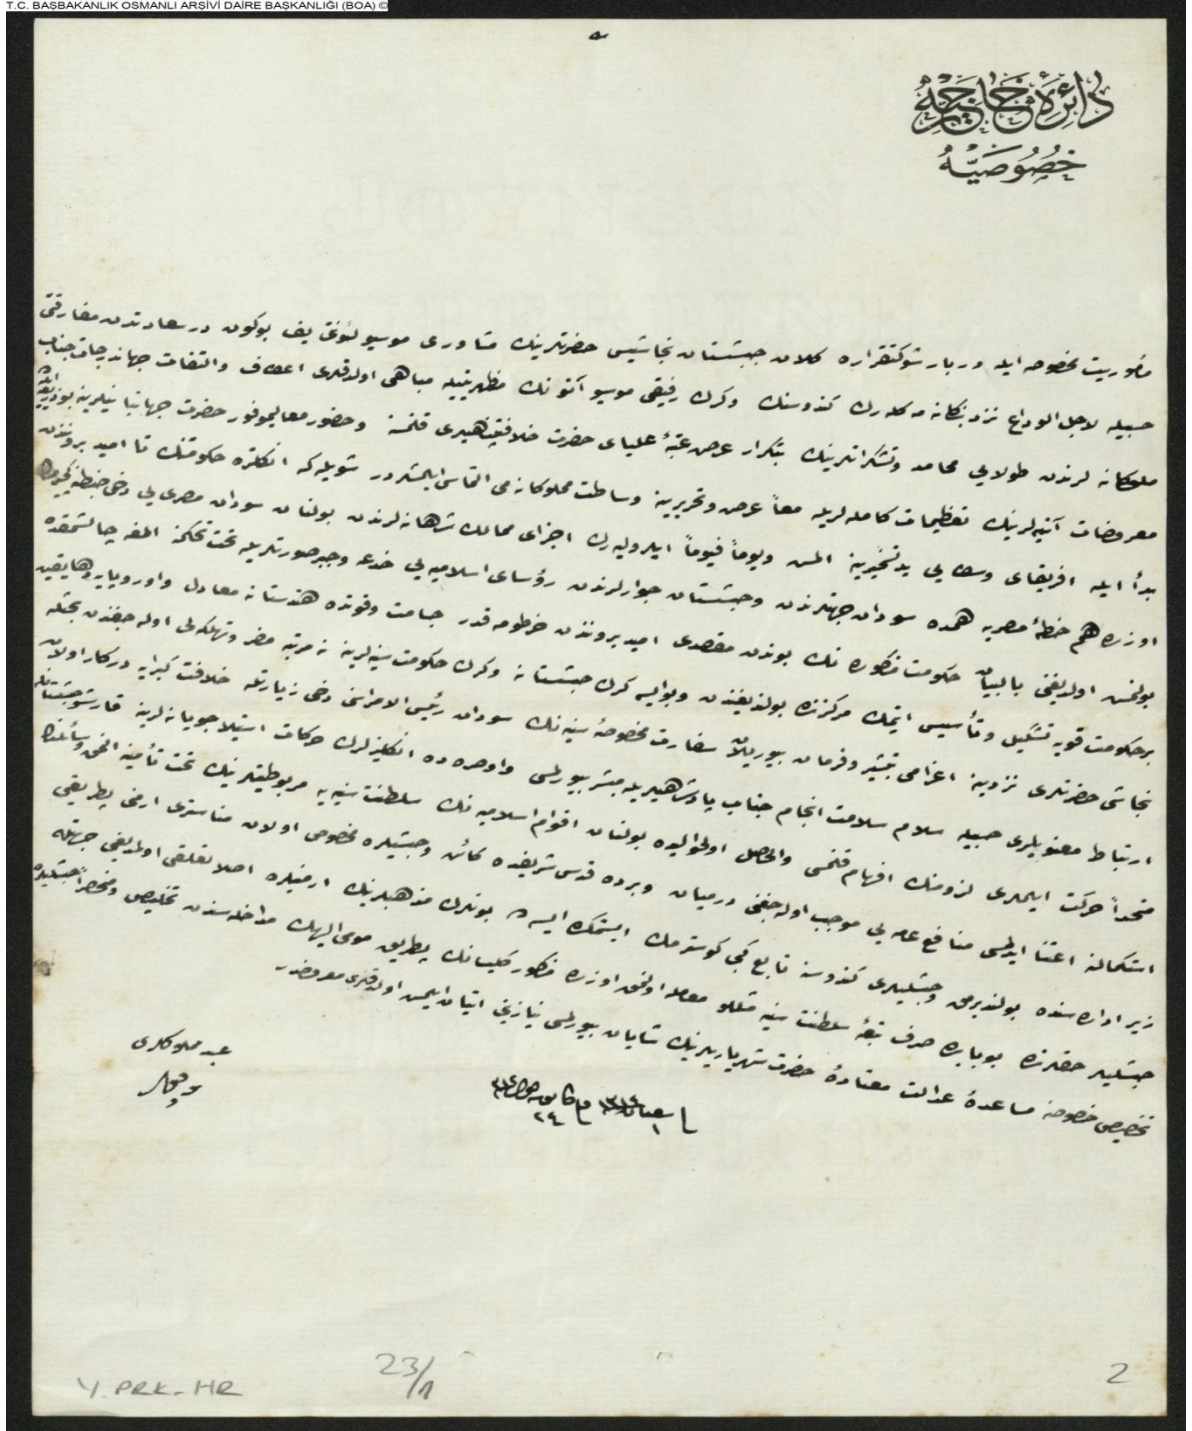 T.C. BAŞBAKANLIK OSMANLI ARŞİVİ DAİRE BAŞKANLIĞI (BOA) ©
دائرهٔ خارجیه
خصوصیه
مأموریت مخصوصه ایله دربار شوکتقراره کلان حبشستان نجاشیسی حضرتلرینك مشاوری موسیو لئونتیف بوکون درسعادتدن مفارقتی
حسبیله لاجل الوداع نزد بندکانه مه کله‌رك کندوسنك وکرك رفیقی موسیو آنتونك مظهریتیله مباهی اولدقلری اعطاف والتفات جهاندرجات جناب
ملوکانه لرندن طولایی محامد وتشکراتلرینك بتکرار عرض عتبهٔ علیای حضرت خلافتپناهیلری قلنمسنه وحضور معالیموفور حضرت جهانبانیلرینه
معروضات آتیه لرینك تعظیمات کامله لریله معاً عرض وتحریرینه وساطت مملوکانه می التماس ایلمشدر شویله که انکلتره حکومتنك تا امید بروننندن
بدأ ایله افریقای وسطایی ید تسخیرینه المسی ویوماً فیوماً ایلرولیه‌رك اجزای ممالك شاهانه لرندن بولنان سودان مصری یی دخی
اوزره هم خطهٔ مصریه همده سودان جهتلرندن وحبشستان جوارلرندن رؤسای اسلامیه یی خدعه وجبر صورتلریله تحت تحکمنه المغه چالشمقده
بولنمش اولدیغنی بالبیان حکومت مذکوره نك بوندن مقصدی امید بروننندن خرطومه قدر جسامت وقوتده هندستانه معادل واوروپایه
بر حکومت قویه تشکیل وتأسیس ایتمك مرکزنده بولندیغندن وبو ایسه کرك حبشستانه وکرك حکومت سنیه لرینه نه مرتبه مضر وتهلکه لی اوله‌جغندن بحثله
نجاشی حضرتلری نزدینه اعزامی تبشیر وفرمان بیوریلان سفارت مخصوصهٔ سنیه نك سودان رئیس الامراسنی دخی زیارتله خلافت کبرایه درکار اولان
ارتباط معنویلری حسبیله سلام سلامت انجام جناب پادشاهیلریله مبشر بیورلمسی واوصره ده انکلیزلرك حرکات استیلاجویانه لرینه قارشو
متحداً حرکت ایلملری لزومنك افهام قلنمسی والحاصل اوحوالیده بولنان اقوام اسلامیه نك سلطنت سنیه یه مربوطیتلرینك تحت تأمینه النمسی
استکمالنه اعتنا ایدلمسی منافع عامه یی موجب اوله‌جغی درمیان وبرده قدس شریفده کائن وحبشیلره مخصوص اولان مناستری ارمنی پطریقی
زیر اداره سنده بولندیرمق وحبشیلری کندوسنه تابع کبی کوسترمك ایستمکده ایسه ده بونلرك مذهبلرینك ارمنیلره اصلا تعلقی اولمدیغی جهتله
حبشیلر حقلرنده بوبابده صرف تبعهٔ سلطنت سنیه مثللو معامله اولنمق اوزره مذکور کلیسانك پطریق مومی الیهك مداخله سندن تخلیص ومنحصراً حبشیلره
تخصیصی خصوصنه مساعدهٔ عدالت معتادهٔ حضرت شهریاریلرینك شایان بیورلمسی نیازینی اتیان ایلمش اولدقلری معروضدر
عبد مملوکلری
١
٢٤
Y. PRK. HR
23/1
2